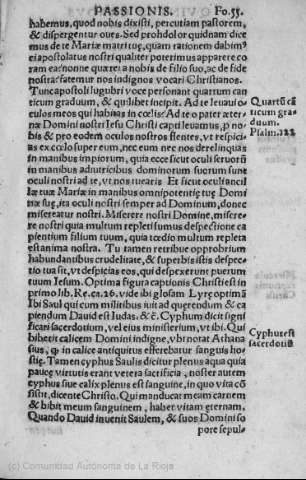 PASSIONIS. Fo.55.
habemus, quod nobis dixisti, percutiam pastorem,
& dispergentur oues. Sed prohdolor quidnam dice
mus de te Mariæ matri tuę, quam rationem dabim9
ei apostolatus nostri qualiter poterimus apparere co
ram ea: nonne quæret a nobis de filio suo, ac de fide
nostra: fatemur nos indignos vocari Christianos.
Tunc apostoli lugubri voce personant quartum can
ticum graduum, & quilibet incipit. Ad te leuaui o-
culos meos qui habitas in cœlis: Ad te o pater æter-
næ Domini nostri Iesu Christi capti leuamus, p no-
bis & pro eodem oculos nostros flentes, vt respicias
ex excelso super eum, nec eum nec nos derelinquas
in manibus impiorum, quia ecce sicut oculi seruorũ
in manibus
dominorum suorum sunt
oculi nostri ad te, vt nos tuearis. Et sicut oculi ancil
læ tuæ Mariæ in manibus omnipotentiæ tuę Domi
næ suę, ita oculi nostri semper ad Dominum, donec
misereatur nostri. Miserere nostri Domine, misere-
re nostri quia multum repleti sumus despectione ca
pientium filium tuum, quia tædio multum repleta
est anima nostra. Tu tamen retribue opprobrium
habundantibus crudelitate, & superbis istis despec-
tio tua sit, vt despicias eos, qui despexerunt puerum
tuum Iesum. Optima figura captionis Christi est in
primo lib. Re. ca. 26. vide ibi glosam Lyrę optimã
Ibi Saul qui cum militibus iuit ad querendum & ca
piendum Dauid est Iudas. & c̃. Cyphum dicit signi
ficari sacerdotium, vel eius ministerium, vt ibi. Qui
bibet it calicem Domini indigne, vbi notat Athana
sius, q̃ in calice antiquitus efferebatur sanguis ho-
stię. Tamen cyphus Saulis dicitur plenus aqua quia
paucę virtutis erant vetera sacrificia, noster autem
cyphus siue calix plenus est sanguine, in quo vita cõ
sistit, dicente Christo. Qui manducat meam carnem
& bibit meum sanguinem, habet vitam eternam.
Quando Dauid inuenit Saulem, & suos Domini so
pore sepul-
Quartũ cã
ticum gra-
duum.
Psalm. 122
Cyphus est
sacerdotiũ
(c) Comunidad Autónoma de La Rioja